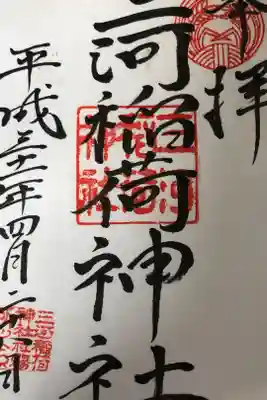 奉拝
三河稲荷神社
平成三十一年四月二十六日